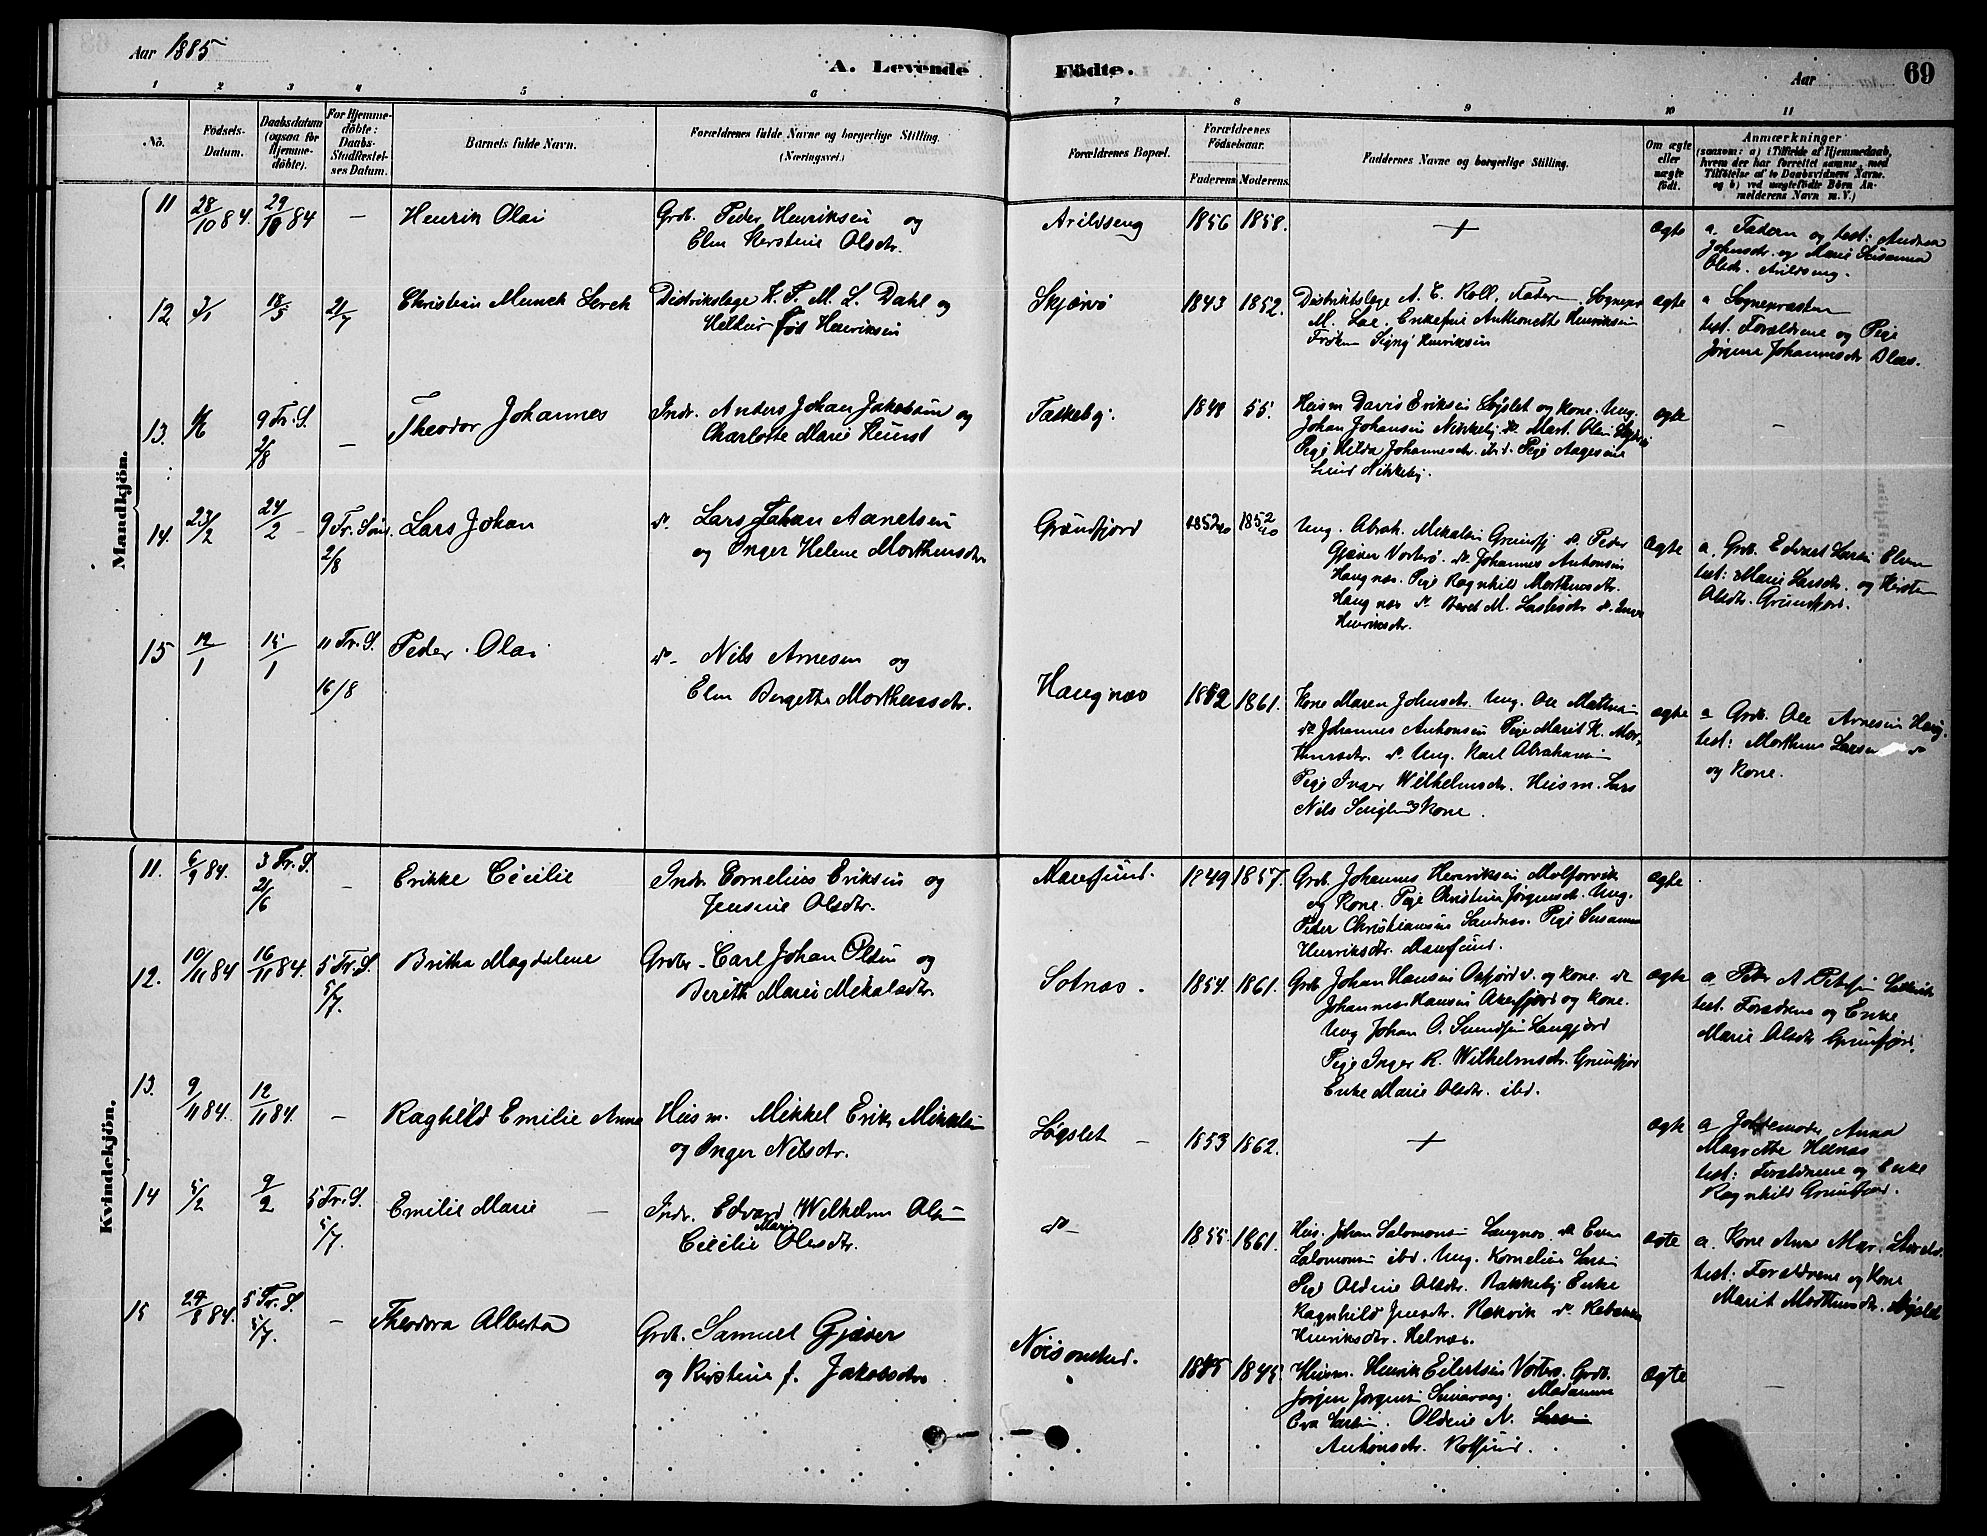 Aar 1885
A. Levende Födte.
Aar
69
1 2 3 4 5 6 7 8 9 10 11
No.
Födsels-
Datum.
Daabsdatum
(ogsaa for
Hjemme-
döbte).
For Hjemme-
döbte:
Daabs-
Stadfæstel-
ses Datum.
Barnets fulde Navn.
Forældrenes fulde Navne og borgerlige Stilling.
(Næringsvei.)
Forældrenes Bopæl.
Forældrenes
Födselsaar.
Faderens Moderens.
Faddernes Navne og borgerlige Stilling.
Om ægte
eller
uægte
födt.
Anmærkninger
(saasom: a) i Tilfælde af Hjemmedaab,
hvem der har forrettet samme, med
Tilföielse af to Daabsvidners Navne.
og b) ved uægtefödte Börn An-
melderens Navn m. V.)
Mandkjön.
11 28/10 84. 29/10 84 — Henrik Olai
Grdb. Peder Henriksen og
Elen Kerstine Olsdtr.
Arildseng 1856 1858. + ægte
a. Faderen og test: Andrea
Johnsdr. og Marie Susanna
Olsdr. Arildseng.
12 3/1 18/5 21/7 Christian Munch Lerck
Distriktslæge K. P. M. L. Dahl og
Hilder född Henriksen
Skjærvö 1843 1852.
Distriktslæge A. C. Roll, Faderen, Sognepr
M. Lae. Enkefru Anthonette Henriksen
Frøken Signy Henriksen
ægte
a Sognepræsten
test. Forældrene og Pige
Jørgine Johannesdr
13. 9 Tr. S.
2/8 — Theodor Johannes
Indr. Anders Johan Jakobsen og
Charlotte Marie Kunst
Taskeby. 1848 55.
Husm Davis Eriksen Løgslet og Kone. Ung.
Johan Johansen Nikkeby do. Mart. Olai
Pige Hilda Johannesdr. ibd. Pige Aagesine
Lund Nikkeby.
ægte —
14. 23/2 24/2 9 Tr. Sön.
2/8 Lars Johan
do. Lars Johan Aanetsen
og Inger Helene Morthensdtr
Grundfjord 1852 1852
Ung. Abrah. Mikalsen Grundfj do. Peder
Gjæver Vorterø. do Johannes Antonsen
Haugnæs. Pige Ragnhild Morthensdr.
Haugnæs do Beret M. Larsdr do.
Henriksdtr.
ægte
a. Grdb. Edvart Larsen Elven
test: Marie Larsdr. og Kirsten
Olsdtr. Grundfjord.
15 12/1 15/1 11 Tr. S.
16/8 Peder Olai
do- Nils Arnesen og
Elen Bergethe Morthensdtr.
Haugnæs 1852 1861.
Kone Maren Johnsdtr. Ung. Ole Mathisen
do Johannes Antonsen Pige Marit K. Mor-
thensdtr. do Ung. Karl Abrahamsen
Pige Inger Wilhelmsdr. Husm. Lars
Nils og Kone.
ægte
a Grdb. Ole Arnesen Haug.
test: Morthen Larsen do
og Kone.
Kvindekjön.
11. 6/9 84. 3 Tr. S.
21/6 — Erikke Cecilie
Indr. Cornelius Eriksen og
Jensine Olsdtr.
Maresund. 1849 1857.
Grdb. Johannes Henriksen Molforvik
og Kone. Pige Christine Jørgensdr. Ung.
Peder Christiansen Sandnæs. Pige Susanna
Henriksdtr. Maresund.
ægte
12. 10/11 84 16/11 84. 5 Tr. S.
5/7. Britha Magdalene
Grdbr. Carl Johan Olsen og
Berith Marie Mikalsdtr.
Sotnæs. 1854. 1861.
Grdb Johan Hansen Oxfjord. og Kone. do
Johannes Hansen Oxfjord og Kone.
Ung Johan O. Svendsen Langfjord
Pige Inger R. Wilhelmsdr. Grundfjor
Enke Marie Olsdtr. ibd.
ægte
a. Peder A. Petersen
test. Forældrene og Enke
Marie Olsdtr Grundfjord.
13. 9/11 84. 12/11 84. — Raghild Emilie Anna
Husm. Mikkel Erik Mikkelsen
og Inger Nilsdtr.
Løgslet — 1853 1862. + ægte
a Jordemoder Anna
Magrethe Helnæs
test: Forældrene og Enke
Ragnhild Grundfjord.
14 5/2 9/2 5 Tr. S.
5/7. Emilie Marie —
Indr. Edvard Wilhelm Olsen
Cecilie Marie Olesdtr.
do- 1855. 1861.
Hus. Johan Salomonsen Langnæs. do Even
Salomonsen ibd. Ung. Kornelius Larsen
Pige Oldine Olsdtr. Bakkeby Enke
Ragnhild Jensdtr. Rakvik do.
Henriksdtr. Helnæs.
ægte
a. Kone Anne Mar.
test: Forældrene og Kone
Marit Morthensdtr. Løgslet
15 24/8 84. 5 Tr. S.
5/7. — Theodora Alberta
Grdb. Samuel Gjæver
og Kirstine f. Jakobsdtr.
1845.
Husm. Henrik Eilertsen Vorterø. Grdb.
Jørgen Jørgensen Madamme
Eva Larsen. Oldine N. Larsen
Antonsdtr. Rotsund.
ægte —